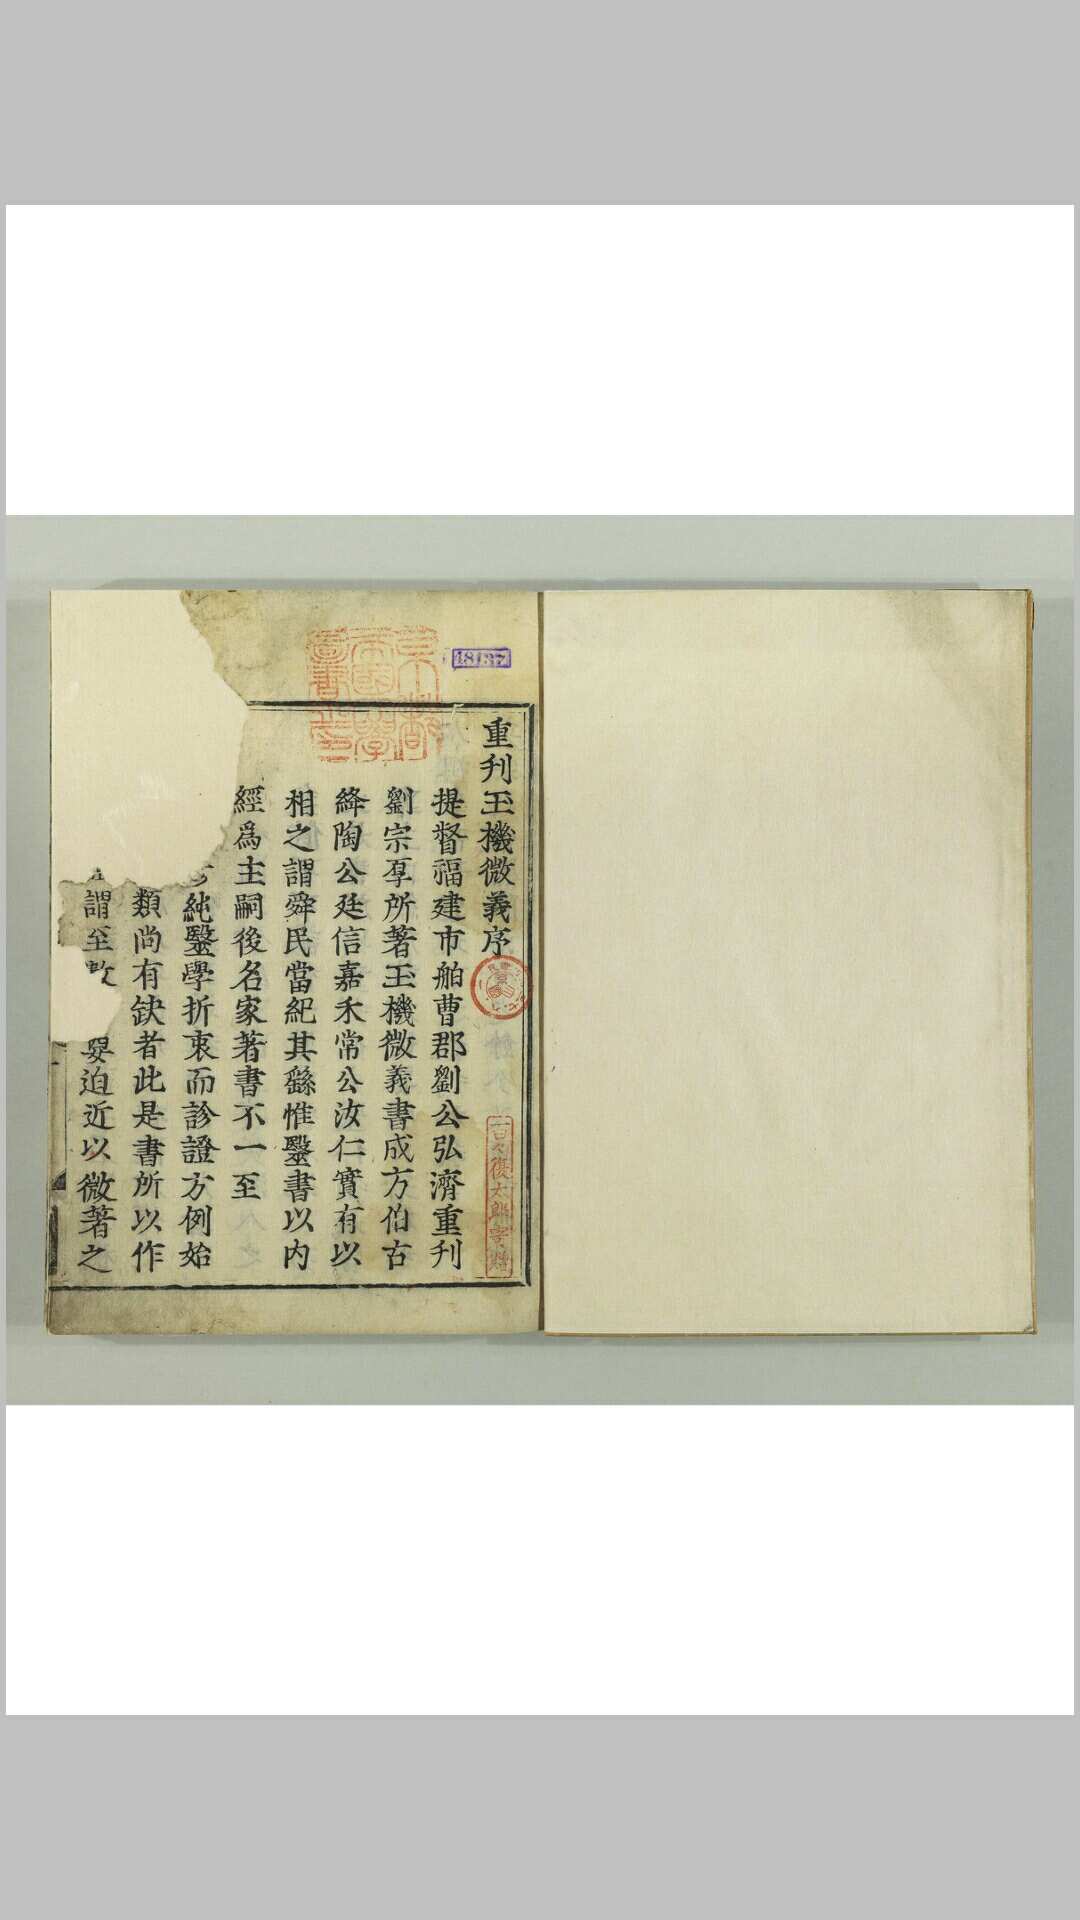 重刋玉機微義序
提督福建市舶曹郡劉公弘濟重刋
劉宗厚所著玉機微義書成方伯古
絳陶公廷信嘉禾常公汝仁實有以
相之謂舜民當紀其繇惟毉書以内
經爲主嗣後名家著書不一至
純毉學折衷而診證方例始
類尚有缺者此是書所以作
謂至
晏迫近以微著之
京都帝國大學圖書之印
48137